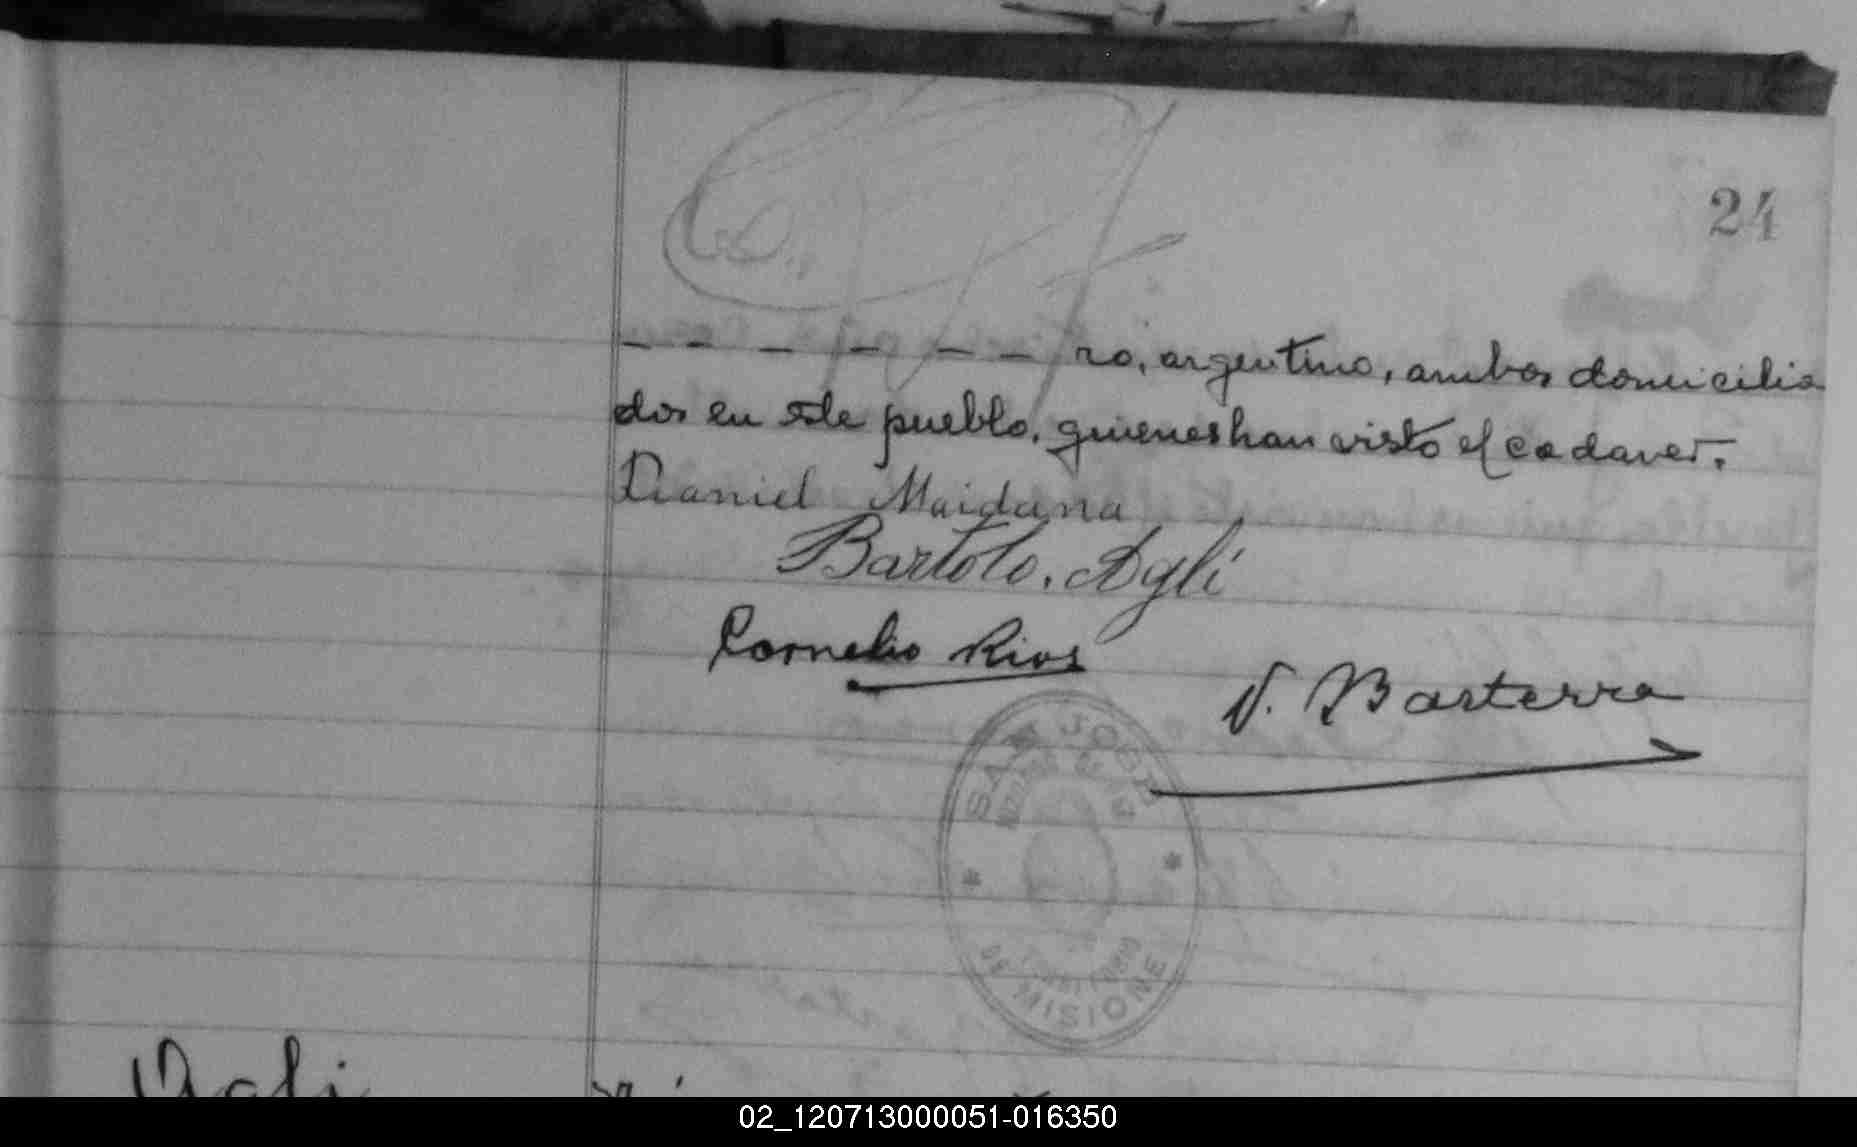 24
_ _ _ _ _ _ ro, argentino, ambos domicilia
dos en este pueblo, quienes han visto el cadaver.
Daniel Maidana
Bartolo. Agli
Cornelio Rios
V. Basterra
SAN JOSE
DE MISIONE
02_120713000051-016350